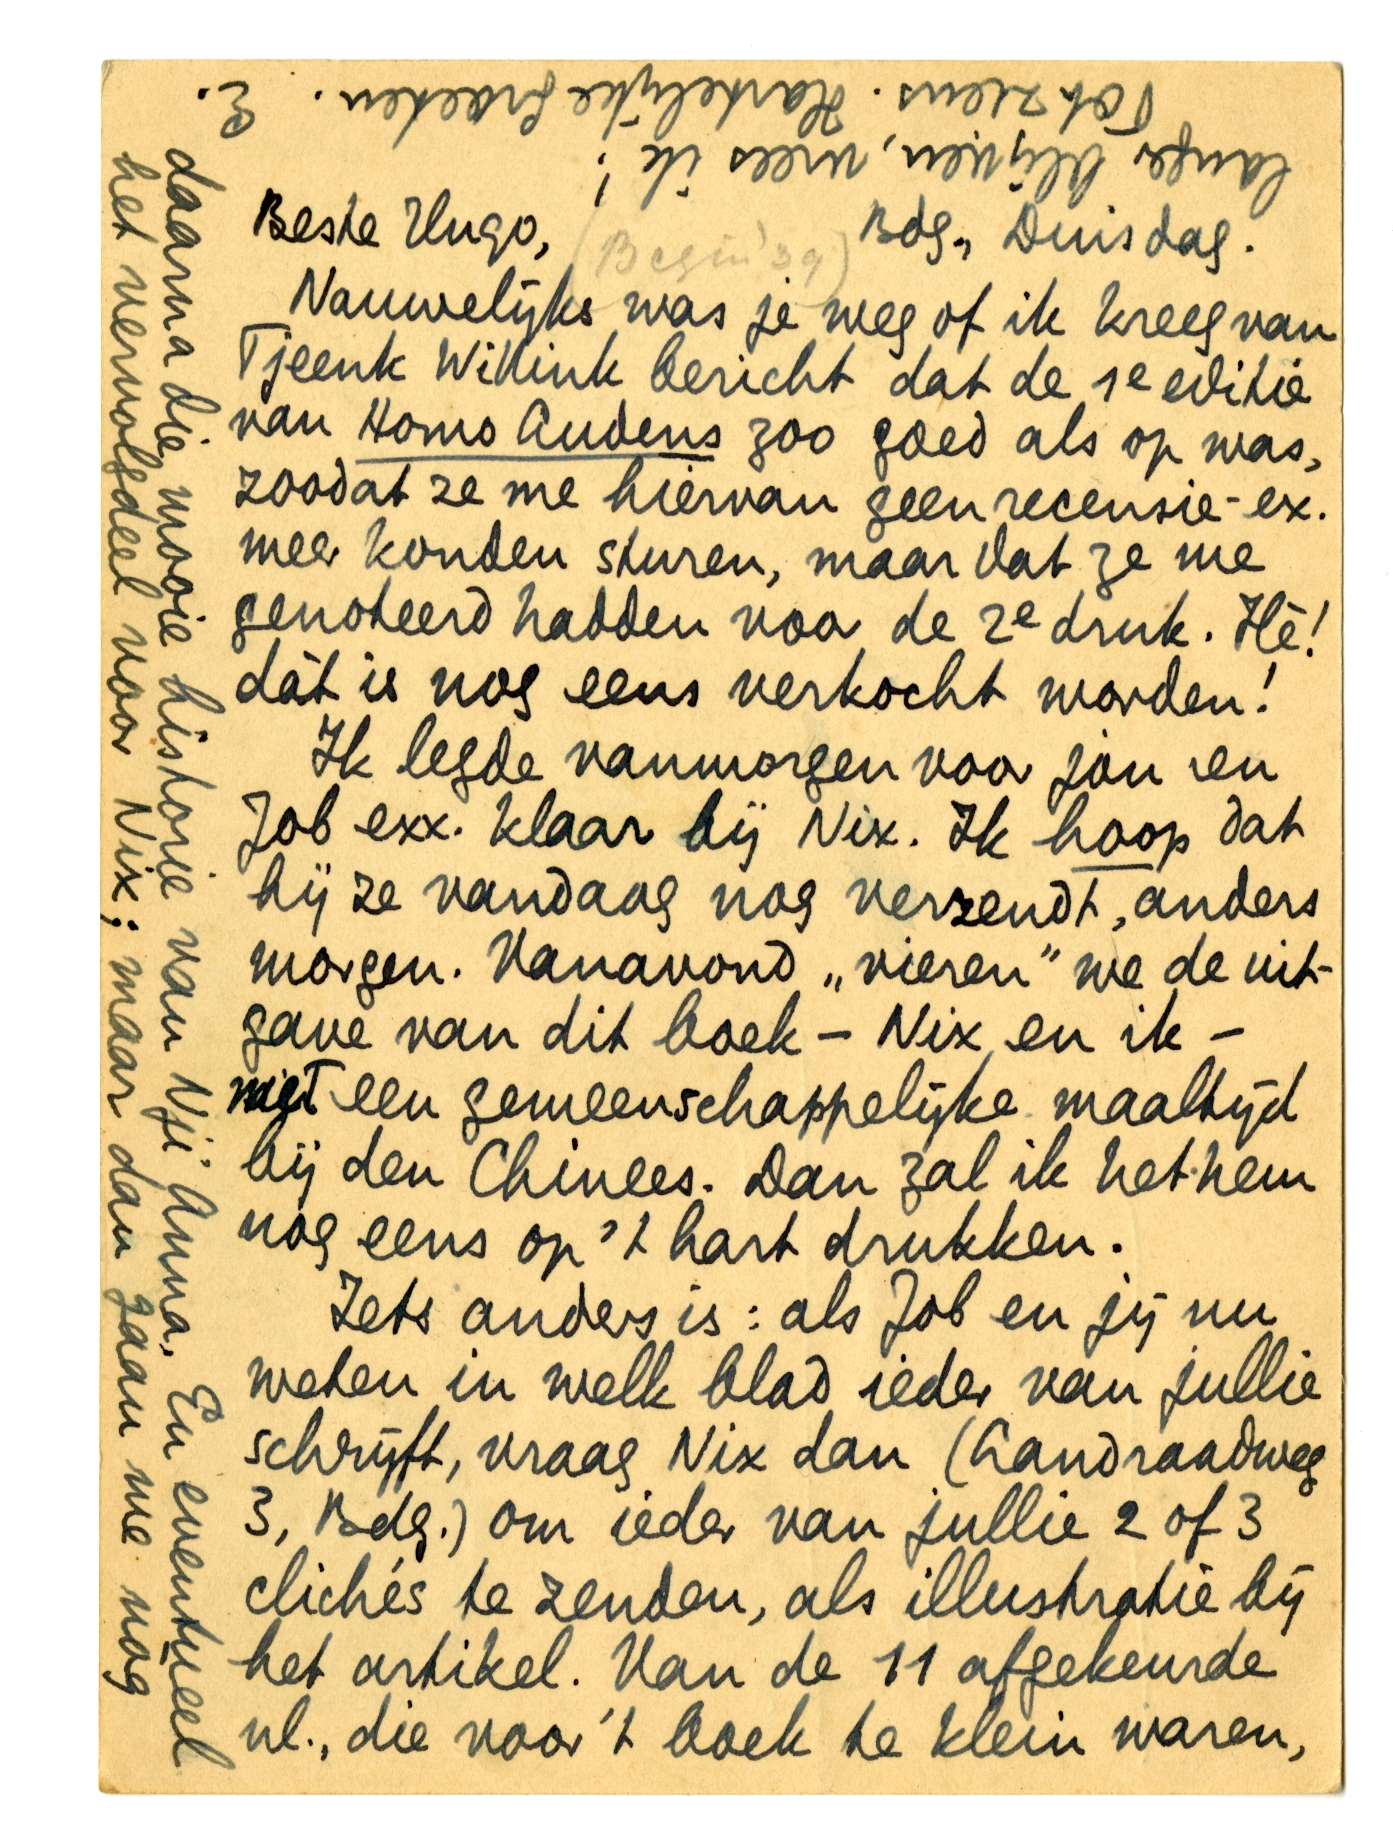 Beste Hugo,
Bdg., Dinsdag.
(Begin '39)
Nauwelijks was je weg of ik kreeg van
Tjeenk Willink bericht dat de 1e editie
van Homo Ludens zoo goed als op was,
zoodat ze me hiervan geen recensie-ex.
meer konden sturen, maar dat ze me
genoteerd hadden voor de 2e druk. Hè!
dàt is nog eens verkocht worden!
Ik legde vanmorgen voor jou en
Job exx. klaar bij Nix. Ik hoop dat
hij ze vandaag nog verzendt, anders
morgen. Vanavond „vieren” we de uit-
gave van dit boek – Nix en ik –
met een gemeenschappelijke maaltijd
bij den Chinees. Dan zal ik het hem
nog eens op 't hart drukken.
Iets anders is: als Job en jij nu
weten in welk blad ieder van jullie
schrijft, vraag Nix dan (Landraadweg
3, Bdg.) om ieder van jullie 2 of 3
clichés te zenden, als illustratie bij
het artikel. Van de 11 afgekeurde
nl., die voor 't boek te klein waren,
daarna die mooie historie van Nji Anna. En eventueel
het vervolgdeel voor Nix; maar dan gaan we nog
langer blijven, vrees ik!
Tot ziens. Hartelijke groeten.
E.